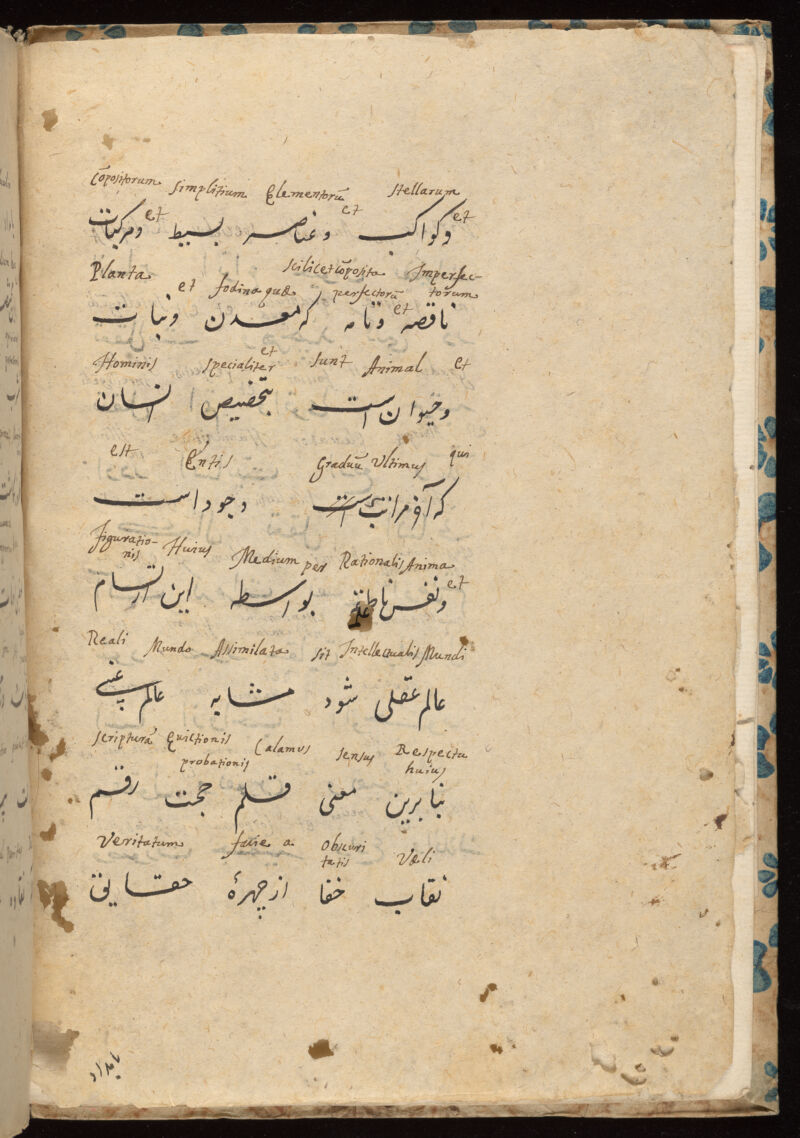 Cōpositorum Simplitium Elementorū Stellarum
وکواکب وعناصر بسیط ومرکبات
et et et
Planta et fodina quæ Scilicet Cōposita Imperfec-
perfectorū torum
ناقصه وتامه که معدن ونبات
et
Hominis specialiter et sunt Animal et
وحیوان است بتخصیص انسان
est Entis Graduū Ultimus qui
که آخر مراتب است وجود است
Figuratio-
nis Huius Medium per Rationalis Anima
et
ونفس ناطقه بواسطه این ارتسام
Reali Mundo Assimilata sit Intellectualis Mundi
عالم عقلی شود مشابه عالم عینی
scripturā Evictionis Calamus sensus Respectu
probationis huius
بنابرین معنی قلم حجت رقم
Veritatum facie a Obscuri Veli
tatis
نقاب خفا از چهرهٔ حقایق
بامداد